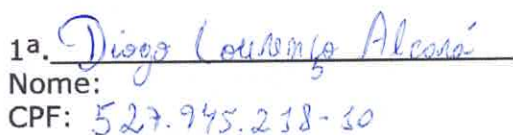 1ª. Diogo Lourenço Alcará
Nome:
CPF: 527.945.238-30